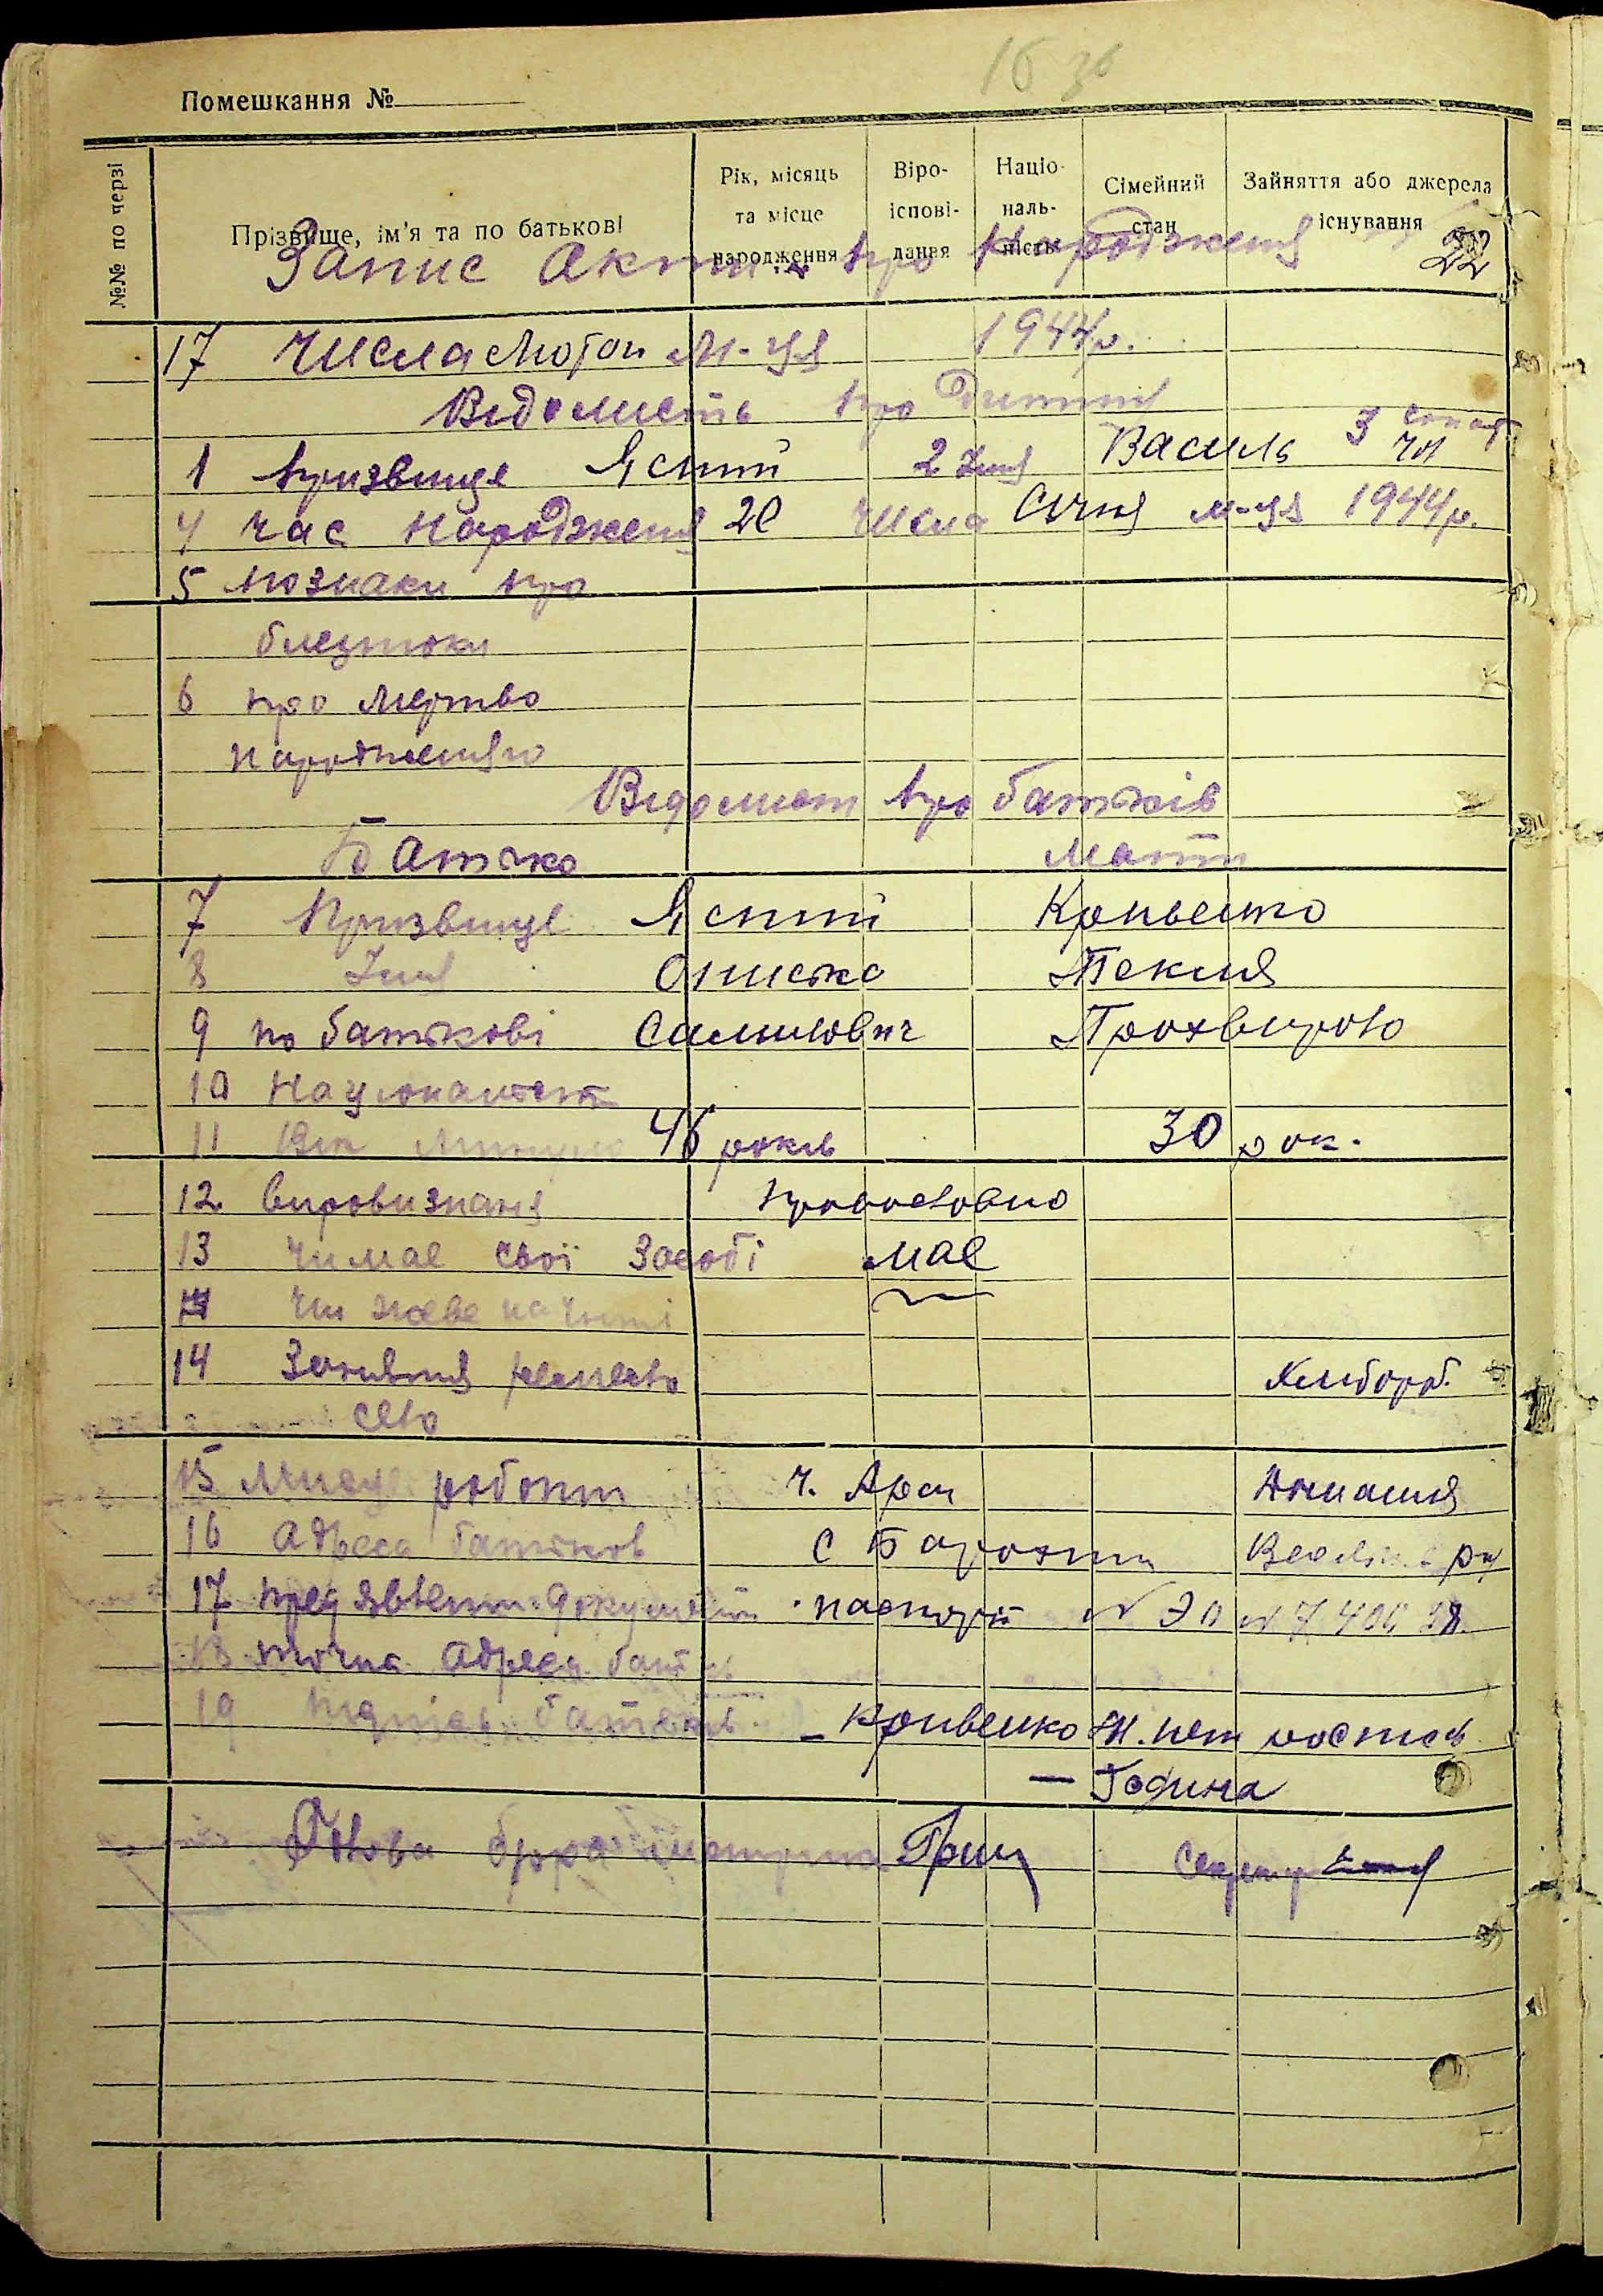 16 зв
Помешкання №
№№ по черзі
Прізвище, ім'я та по батькові
Рік, місяць та місце народження
Віро-іспові-дання
Націо-наль-ність
Сімейний стан
Зайняття або джерела існування
Запис Акти про Народженя 22
17 числа Лютои м-ця 1944р.
Відомисть про Дитиня
1 призвище Ясний 2 Імя Василь 3 чл
4 час народженя 20 числа Січня м-ця 1944р.
5 познаки про
близнюки
6 про мертво
народженяго
Відомист про батьків
Батько Мати
7 Призвище Ясний Кривенко
8 Імя Онисько Текля
9 по батькові Самилович Прохвирою
10 Нацıональност
11 Вік 46 років 30 рок.
12 вировизнаня православно
13 чи має свої Засобі має
Чи живе на
14 Заняття ремесло
село Хлибороб.
15 Мисце роботи Ч. Арм Домашня
16 Адреса батьків с Барахти рн
17 пред'явлени документи паспорт №
18 точна Адреса бат
19 підпись батьків - Кривенко Н. нет роспись
— Година
Голова Секретр